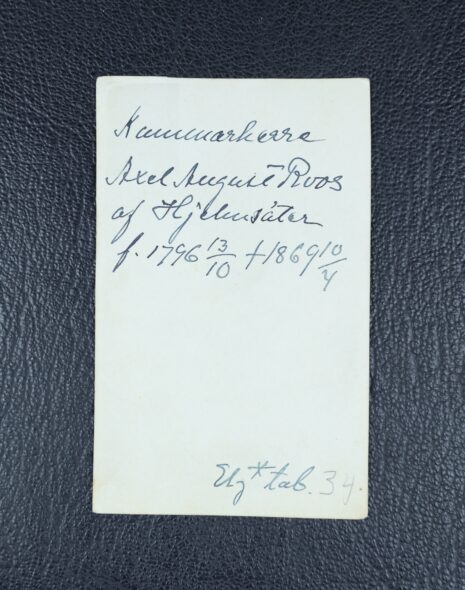 Kammarherre
Axel August Roos
af Hjelmsäter
f. 1796 13/10 †1869 10/4
Elg* tab. 34.